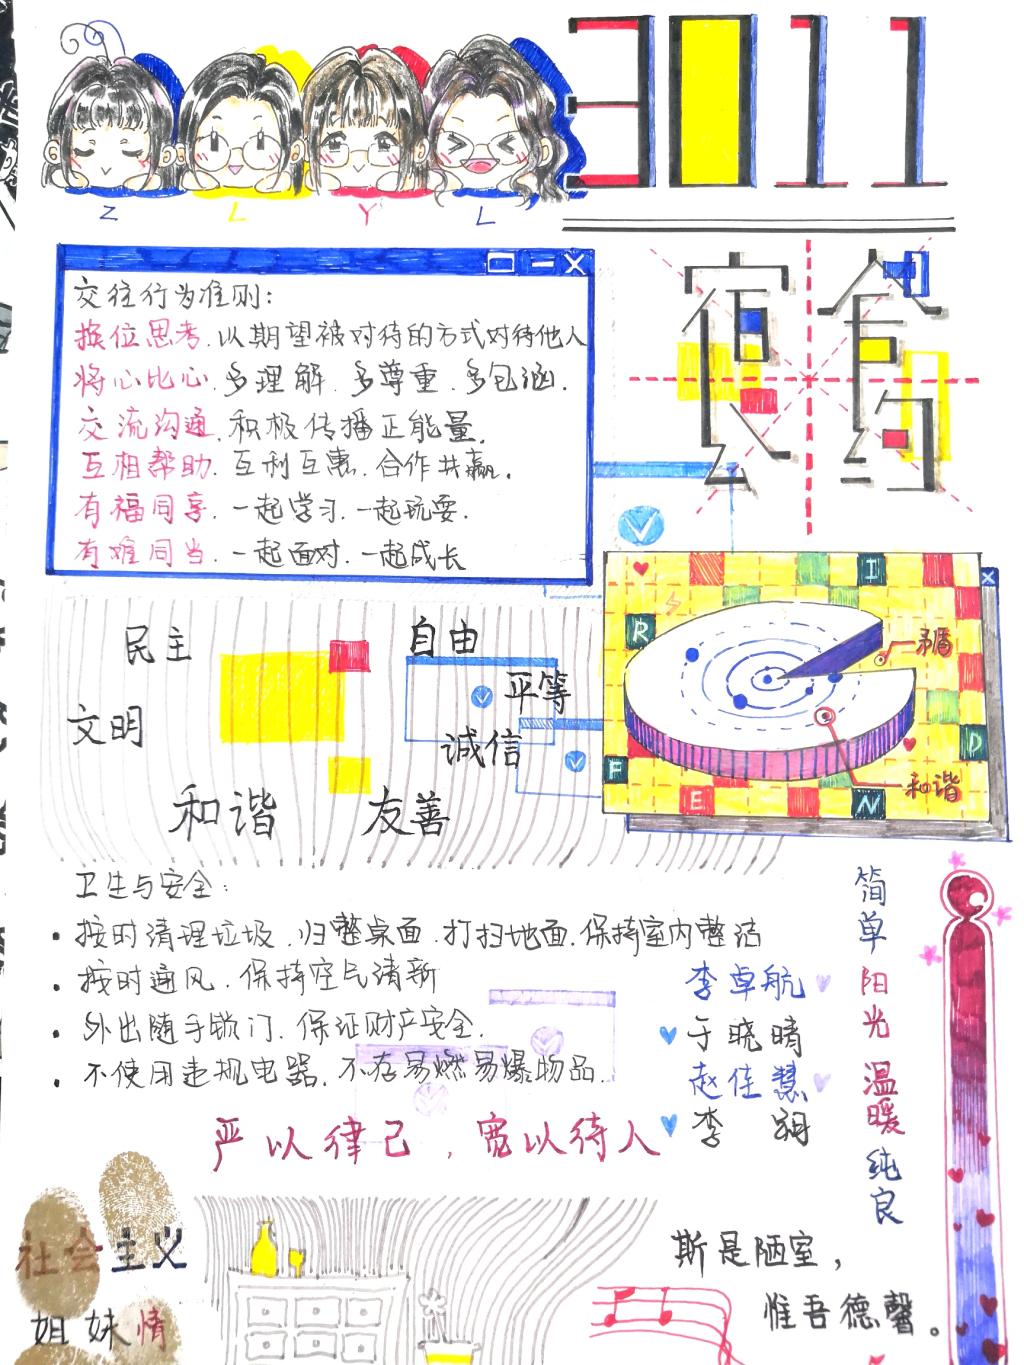 3011
Z L Y L
宿舍公约
交往行为准则：
换位思考.以期望被对待的方式对待他人
将心比心.多理解.多尊重.多包涵.
交流沟通.积极传播正能量.
互相帮助.互利互惠.合作共赢.
有福同享.一起学习.一起玩耍.
有难同当.一起面对.一起成长
民主
自由
平等
文明
诚信
和谐
友善
F R I E N D
矛盾
和谐
卫生与安全：
• 按时清理垃圾.归整桌面.打扫地面.保持室内整洁
• 按时通风.保持空气清新
• 外出随手锁门.保证财产安全.
• 不使用违规电器.不存易燃易爆物品.
李卓航
于晓晴
赵佳慧
李
简单
阳光
温暖
纯良
严以律己，宽以待人
社会主义
姐妹情
斯是陋室，
惟吾德馨。